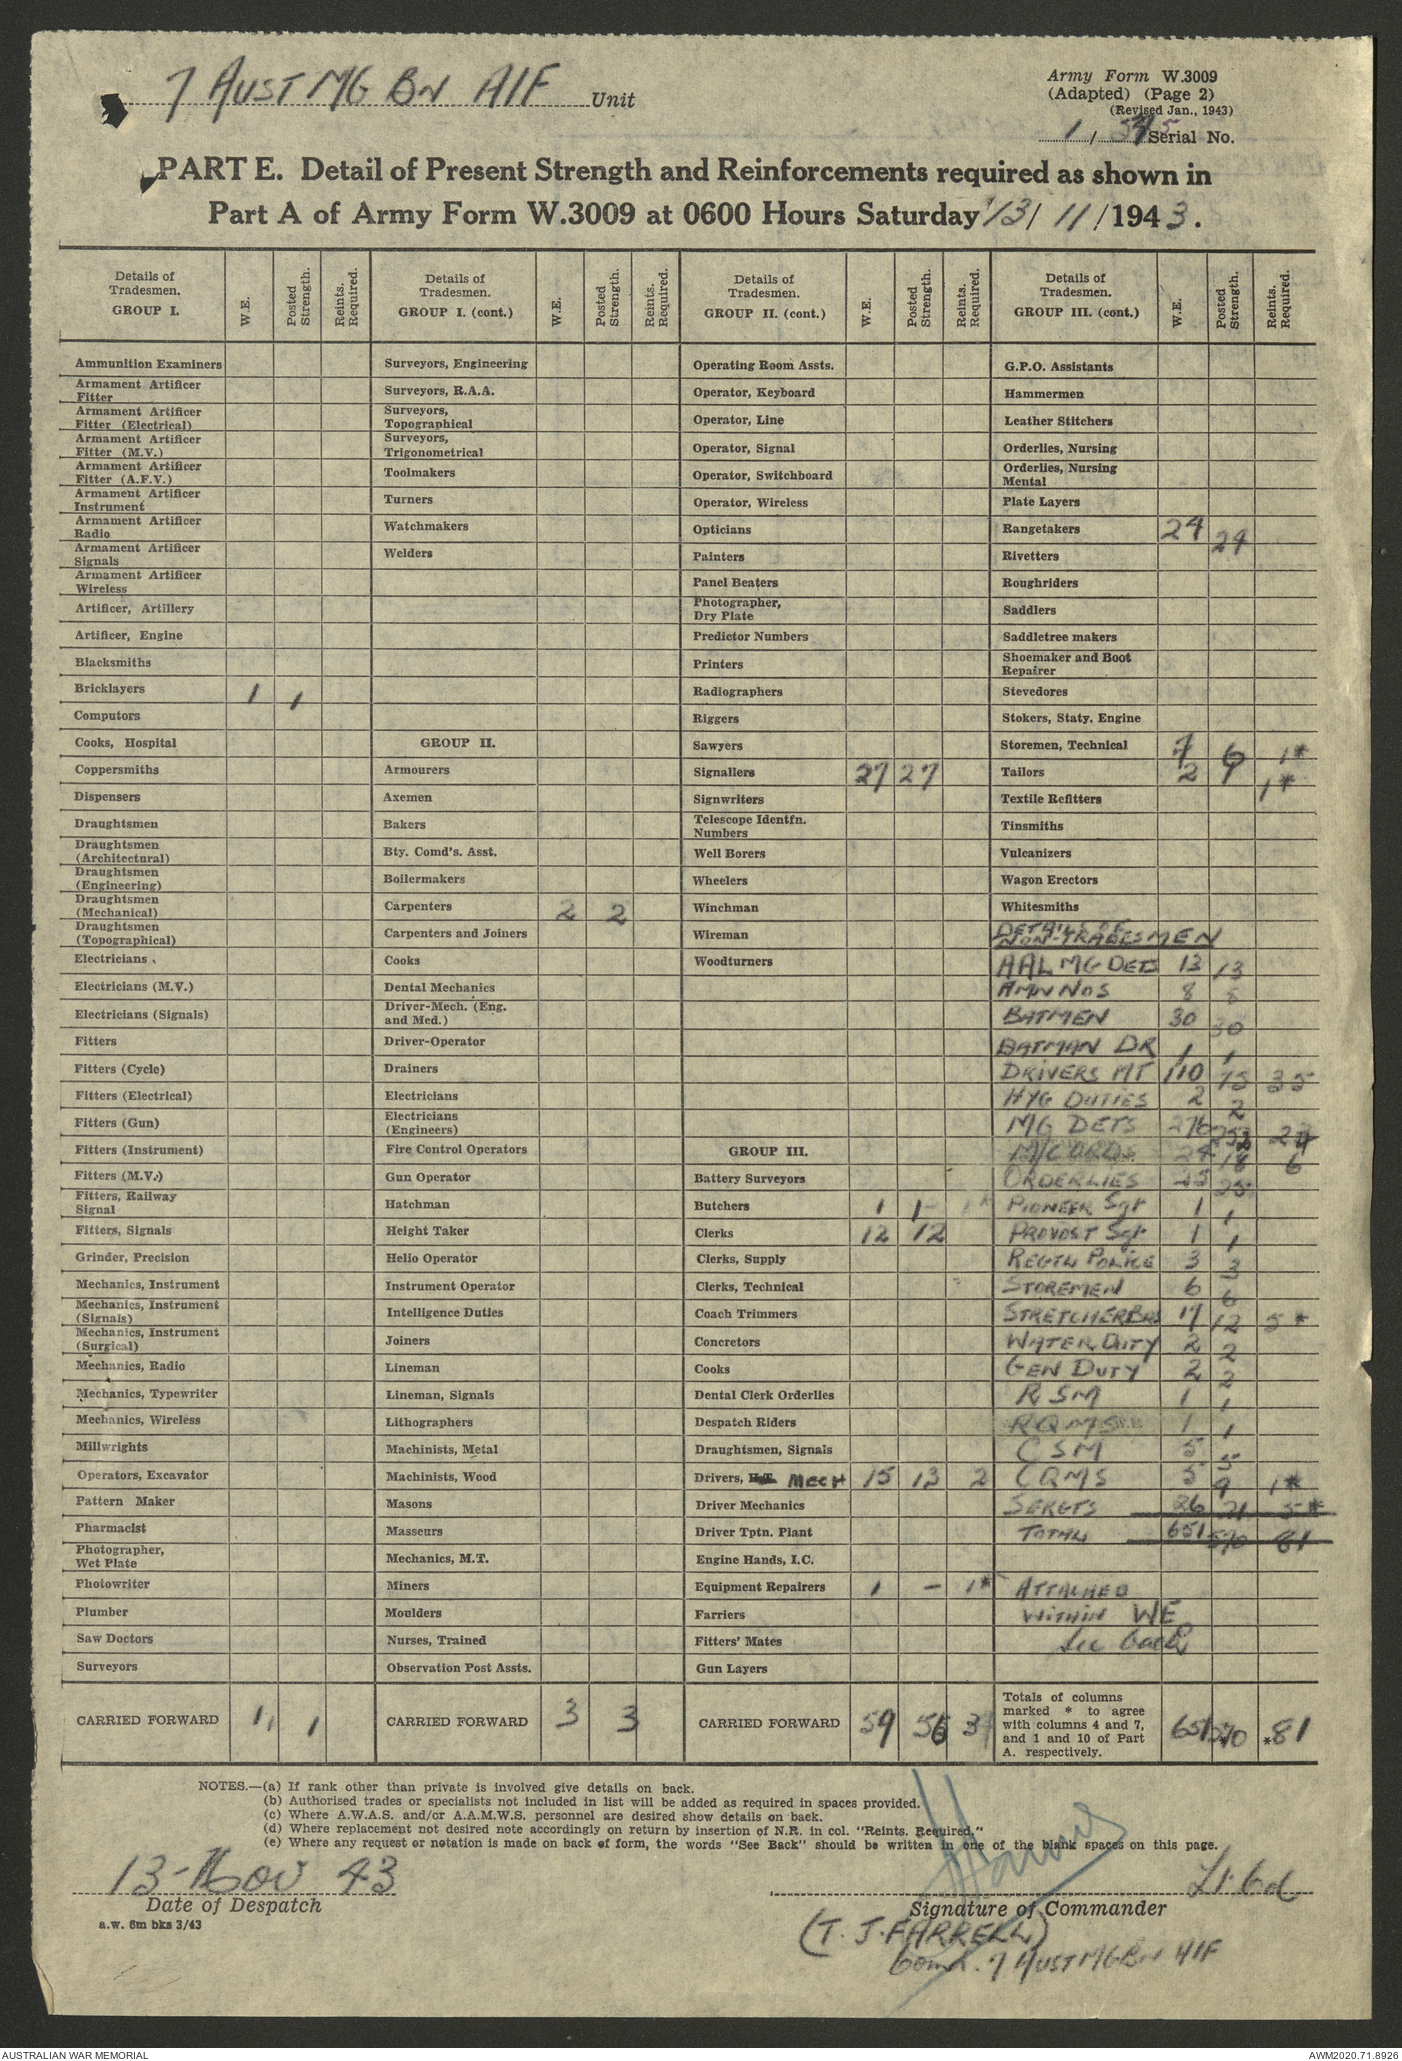 7 AUST MG BN AIF Unit
Army Form W.3009
(Adapted) (Page 2)
(Revised Jan., 1943)
1 / Serial No.
PART E. Detail of Present Strength and Reinforcements required as shown in
Part A of Army Form W.3009 at 0600 Hours Saturday 13/ 11 /1943.
Details of Tradesmen. GROUP I. W.E. Posted Strength. Reints. Required.
Ammunition Examiners
Armament Artificer Fitter
Armament Artificer Fitter (Electrical)
Armament Artificer Fitter (M.V.)
Armament Artificer Fitter (A.F.V.)
Armament Artificer Instrument
Armament Artificer Radio
Armament Artificer Signals
Armament Artificer Wireless
Artificer, Artillery
Artificer, Engine
Blacksmiths
Bricklayers 1 1
Computors
Cooks, Hospital
Coppersmiths
Dispensers
Draughtsmen
Draughtsmen (Architectural)
Draughtsmen (Engineering)
Draughtsmen (Mechanical)
Draughtsmen (Topographical)
Electricians
Electricians (M.V.)
Electricians (Signals)
Fitters
Fitters (Cycle)
Fitters (Electrical)
Fitters (Gun)
Fitters (Instrument)
Fitters (M.V.)
Fitters, Railway Signal
Fitters, Signals
Grinder, Precision
Mechanics, Instrument
Mechanics, Instrument (Signals)
Mechanics, Instrument (Surgical)
Mechanics, Radio
Mechanics, Typewriter
Mechanics, Wireless
Millwrights
Operators, Excavator
Pattern Maker
Pharmacist
Photographer, Wet Plate
Photowriter
Plumber
Saw Doctors
Surveyors
CARRIED FORWARD 1 1
Details of Tradesmen. GROUP I. (cont.) W.E. Posted Strength. Reints. Required.
Surveyors, Engineering
Surveyors, R.A.A.
Surveyors, Topographical
Surveyors, Trigonometrical
Toolmakers
Turners
Watchmakers
Welders
GROUP II.
Armourers
Axemen
Bakers
Bty. Comd's. Asst.
Boilermakers
Carpenters 2 2
Carpenters and Joiners
Cooks
Dental Mechanics
Driver-Mech. (Eng. and Med.)
Driver-Operator
Drainers
Electricians
Electricians (Engineers)
Fire Control Operators
Gun Operator
Hatchman
Height Taker
Helio Operator
Instrument Operator
Intelligence Duties
Joiners
Lineman
Lineman, Signals
Lithographers
Machinists, Metal
Machinists, Wood
Masons
Masseurs
Mechanics, M.T.
Miners
Moulders
Nurses, Trained
Observation Post Assts.
CARRIED FORWARD 3 3
Details of Tradesmen. GROUP II. (cont.) W.E. Posted Strength. Reints. Required.
Operating Room Assts.
Operator, Keyboard
Operator, Line
Operator, Signal
Operator, Switchboard
Operator, Wireless
Opticians
Painters
Panel Beaters
Photographer, Dry Plate
Predictor Numbers
Printers
Radiographers
Riggers
Sawyers
Signallers 27 27
Signwriters
Telescope Identfn. Numbers
Well Borers
Wheelers
Winchman
Wireman
Woodturners
GROUP III.
Battery Surveyors
Butchers 1 1
Clerks 12 12
Clerks, Supply
Clerks, Technical
Coach Trimmers
Concretors
Cooks
Dental Clerk Orderlies
Despatch Riders
Draughtsmen, Signals
Drivers, H.T. MECH 15 13 2
Driver Mechanics
Driver Tptn. Plant
Engine Hands, I.C.
Equipment Repairers 1 - 1*
Farriers
Fitters' Mates
Gun Layers
CARRIED FORWARD 59 56 3
Details of Tradesmen. GROUP III. (cont.) W.E. Posted Strength. Reints. Required.
G.P.O. Assistants
Hammermen
Leather Stitchers
Orderlies, Nursing
Orderlies, Nursing Mental
Plate Layers
Rangetakers 24 24
Rivetters
Roughriders
Saddlers
Saddletree makers
Shoemaker and Boot Repairer
Stevedores
Stokers, Staty. Engine
Storemen, Technical 7 6 1*
Tailors 2 1 1*
Textile Refitters
Tinsmiths
Vulcanizers
Wagon Erectors
Whitesmiths
DETAILS OF
NON-TRADESMEN
AALMG DETS 13 13
AMN NOS 8 8
BATMEN 30 30
BATMAN DR 1 1
DRIVERS MT 110 75 35
HYG DUTIES 2 2
MG DETS 276 252 24
M/C ORDS 24 18 6
ORDERLIES 25 25
PIONEER Sgt 1 1
PROVOST Sgt 1 1
REGTL POLICE 3 3
STOREMEN 6 6
STRETCHERBRS 17 12 5*
WATER DUTY 2 2
GEN DUTY 2 2
RSM 1 1
RQMS 1 1
CSM 5 5
CQMS 5 4 1*
SERGTS 26 21 5*
TOTAL 651 570 81
ATTACHED
WITHIN WE
See back
Totals of columns marked * to agree with columns 4 and 7, and 1 and 10 of Part A. respectively. 651 *570 *81
NOTES.—(a) If rank other than private is involved give details on back.
(b) Authorised trades or specialists not included in list will be added as required in spaces provided.
(c) Where A.W.A.S. and/or A.A.M.W.S. personnel are desired show details on back.
(d) Where replacement not desired note accordingly on return by insertion of N.R. in col. "Reints. Required."
(e) Where any request or notation is made on back of form, the words "See Back" should be written in one of the blank spaces on this page.
13-Nov 43
Date of Despatch
a.w. 6m bks 3/43
Lt-Col
Signature of Commander
(T. J. FARRELL)
Comd. 7 AUST MG BN AIF
AUSTRALIAN WAR MEMORIAL
AWM2020.71.8926